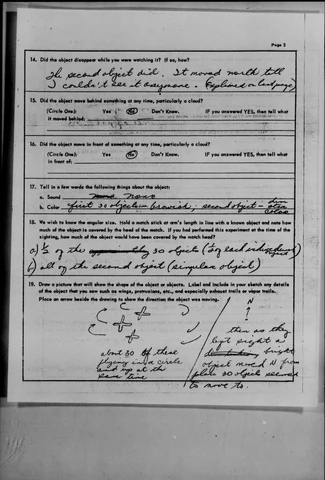 Page 3
14. Did the object disappear while you were watching it? If so, how?
The second object did. It moved north till
I couldn't see it anymore. (Explained on last page)
15. Did the object move behind something at any time, particularly a cloud?
(Circle One): Yes No Don't Know. IF you answered YES, then tell what
it moved behind:
16. Did the object move in front of something at any time, particularly a cloud?
(Circle One): Yes No Don't Know. IF you answered YES, then tell what
it moved in front of:
17. Tell in a few words the following things about the object:
a. Sound None
b. Color first 30 objects - bluish; second object -
color
18. We wish to know the angular size. Hold a match stick at arm's length in line with a known object and note how
much of the object is covered by the head of the match. If you had performed this experiment at the time of the
sighting, how much of the object would have been covered by the match head?
a) 1/2 of the 30 objects (1/2 of each individual
object)
b) all of the second object (singular object)
19. Draw a picture that will show the shape of the object or objects. Label and include in your sketch any details
of the object that you saw such as wings, protrusions, etc., and especially exhaust trails or vapor trails.
Place an arrow beside the drawing to show the direction the object was moving.
N
about 30 of these
flying in a circle
and up at the
same time
then as they
left sight a
bright
object moved N from
place 30 objects seemed
to move to.